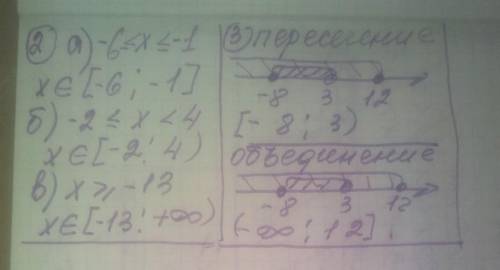 2 а) -6≤x≤-1
x∈[-6; -1]
б) -2 ≤ x < 4
x∈[-2; 4)
в) x ≥ -13
x∈[-13; +∞)
3 пересечение
-8 3 12
[-8; 3)
объединение
-8 3 12
(-∞; 12]